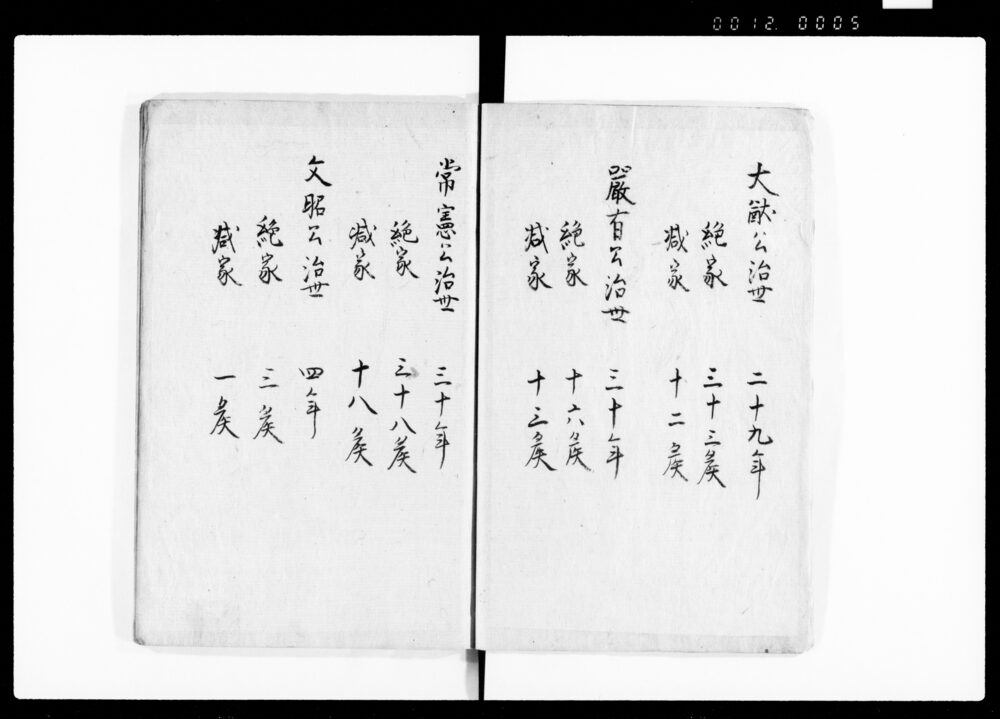 0012 0005
大猷公治世 二十九年
絶家 三十三矦
減家 十二矦
嚴有公治世 三十年
絶家 十六矦
減家 十三矦
常憲公治世 三十年
絶家 三十八矦
減家 十八矦
文昭公治世 四年
絶家 三矦
減家 一矦